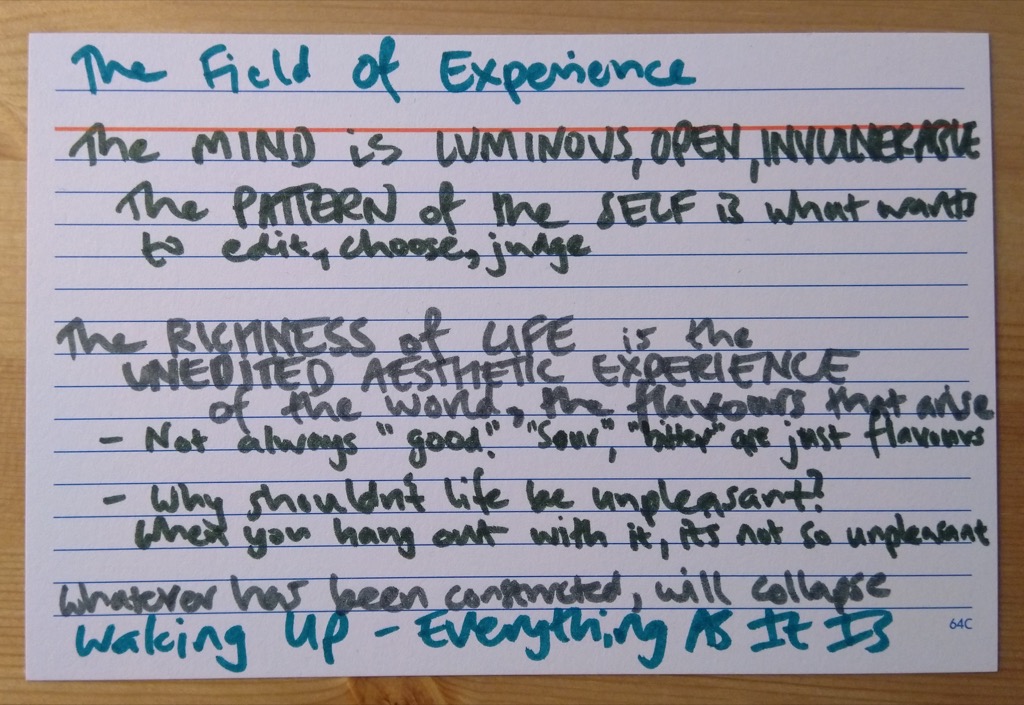 The Field of Experience
The MIND is LUMINOUS, OPEN, INVULNERABLE
The PATTERN of the SELF is what wants
to edit, choose, judge
The RICHNESS of LIFE is the
UNEDITED AESTHETIC EXPERIENCE
of the world, the flavours that arise
- Not always "good". "Sour", "bitter" are just flavours
- Why shouldn't life be unpleasant?
When you hang out with it, it's not so unpleasant
Whatever has been constructed, will collapse
Waking Up - Everything As It Is
64C